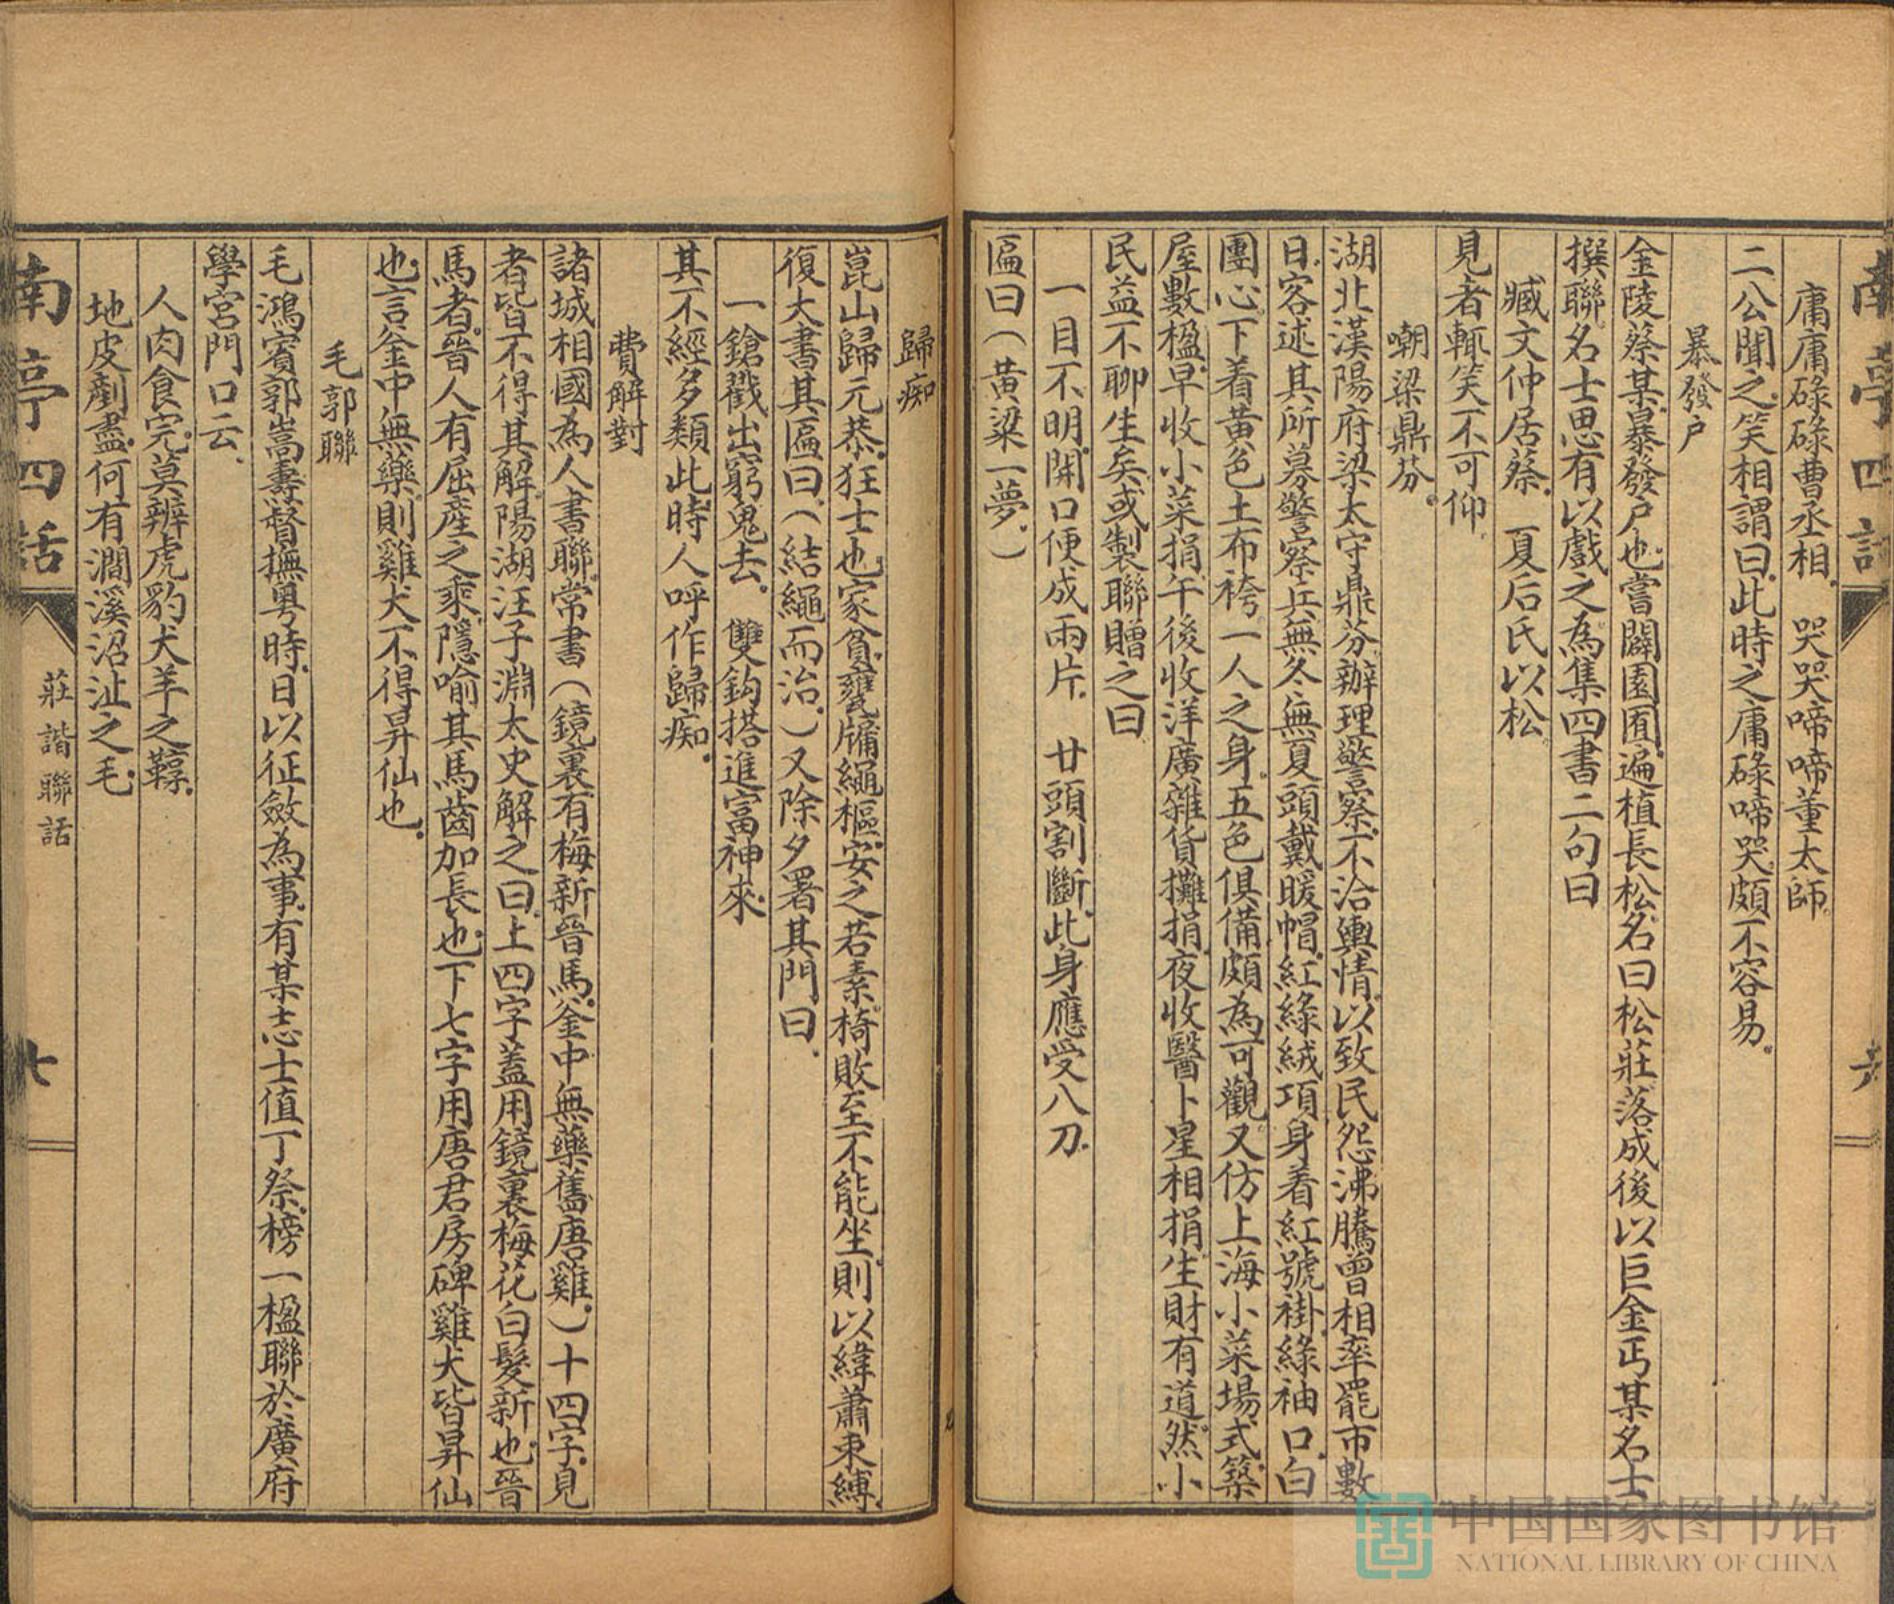 南亭四話
六
庸庸碌碌曹丞相。　哭哭啼啼董太師。
二公聞之。笑相謂曰。此時之庸碌啼哭。頗不容易。
暴發户
金陵蔡某。暴發户也。嘗闢園囿。遍植長松。名曰松莊。落成後以巨金丐某名士
撰聯。名士思有以戲之。為集四書二句曰
臧文仲居蔡。　夏后氏以松
見者輒笑不可仰
嘲梁鼎芬。
湖北漢陽府梁太守鼎芬。辦理警察。不洽輿情。以致民怨沸騰。曾相率罷市數
日。客述其所募警察兵。無冬無夏。頭戴暖帽。紅綠絨項。身着紅號褂。綠袖口。白
團心。下着黄色土布袴。一人之身。五色俱備。頗為可觀。又仿上海小菜場式。築
屋數楹。早收小菜捐。午後收洋廣雜貨攤捐。夜收醫卜星相捐。生財有道。然小
民益不聊生矣。或製聯贈之曰
一目不明。開口便成兩片。　廿頭割斷。此身應受八刀。
匾曰（黄粱一夢。）
歸痴
崑山歸元恭。狂士也。家貧。甕牖繩樞。安之若素。椅敗至不能坐。則以緯蕭束縛。
復大書其匾曰。（結繩而治。）又除夕署其門曰。
一鎗戳出窮鬼去。　雙鈎搭進富神來。
其不經多類此。時人呼作歸痴。
費解對
諸城相國為人書聯。常書（鏡裏有梅新晉馬。釜中無藥舊唐雞。）十四字。見
者皆不得其解。陽湖汪子淵太史解之曰。上四字蓋用鏡裏梅花白髮新也。晉
馬者。晉人有屈產之乘。隱喻其馬齒加長也。下七字用唐君房碑雞犬皆昇仙
也。言釜中無藥。則雞犬不得昇仙也。
毛郭聯
毛鴻賓郭嵩燾督撫粤時。日以征斂為事。有某志士值丁祭。榜一楹聯於廣府
學宮門口云。
人肉食完。莫辨虎豹犬羊之鞟。
地皮剷盡。何有澗溪沼沚之毛。
南亭四話
莊諧聯話
七
中国国家图书馆
NATIONAL LIBRARY OF CHINA